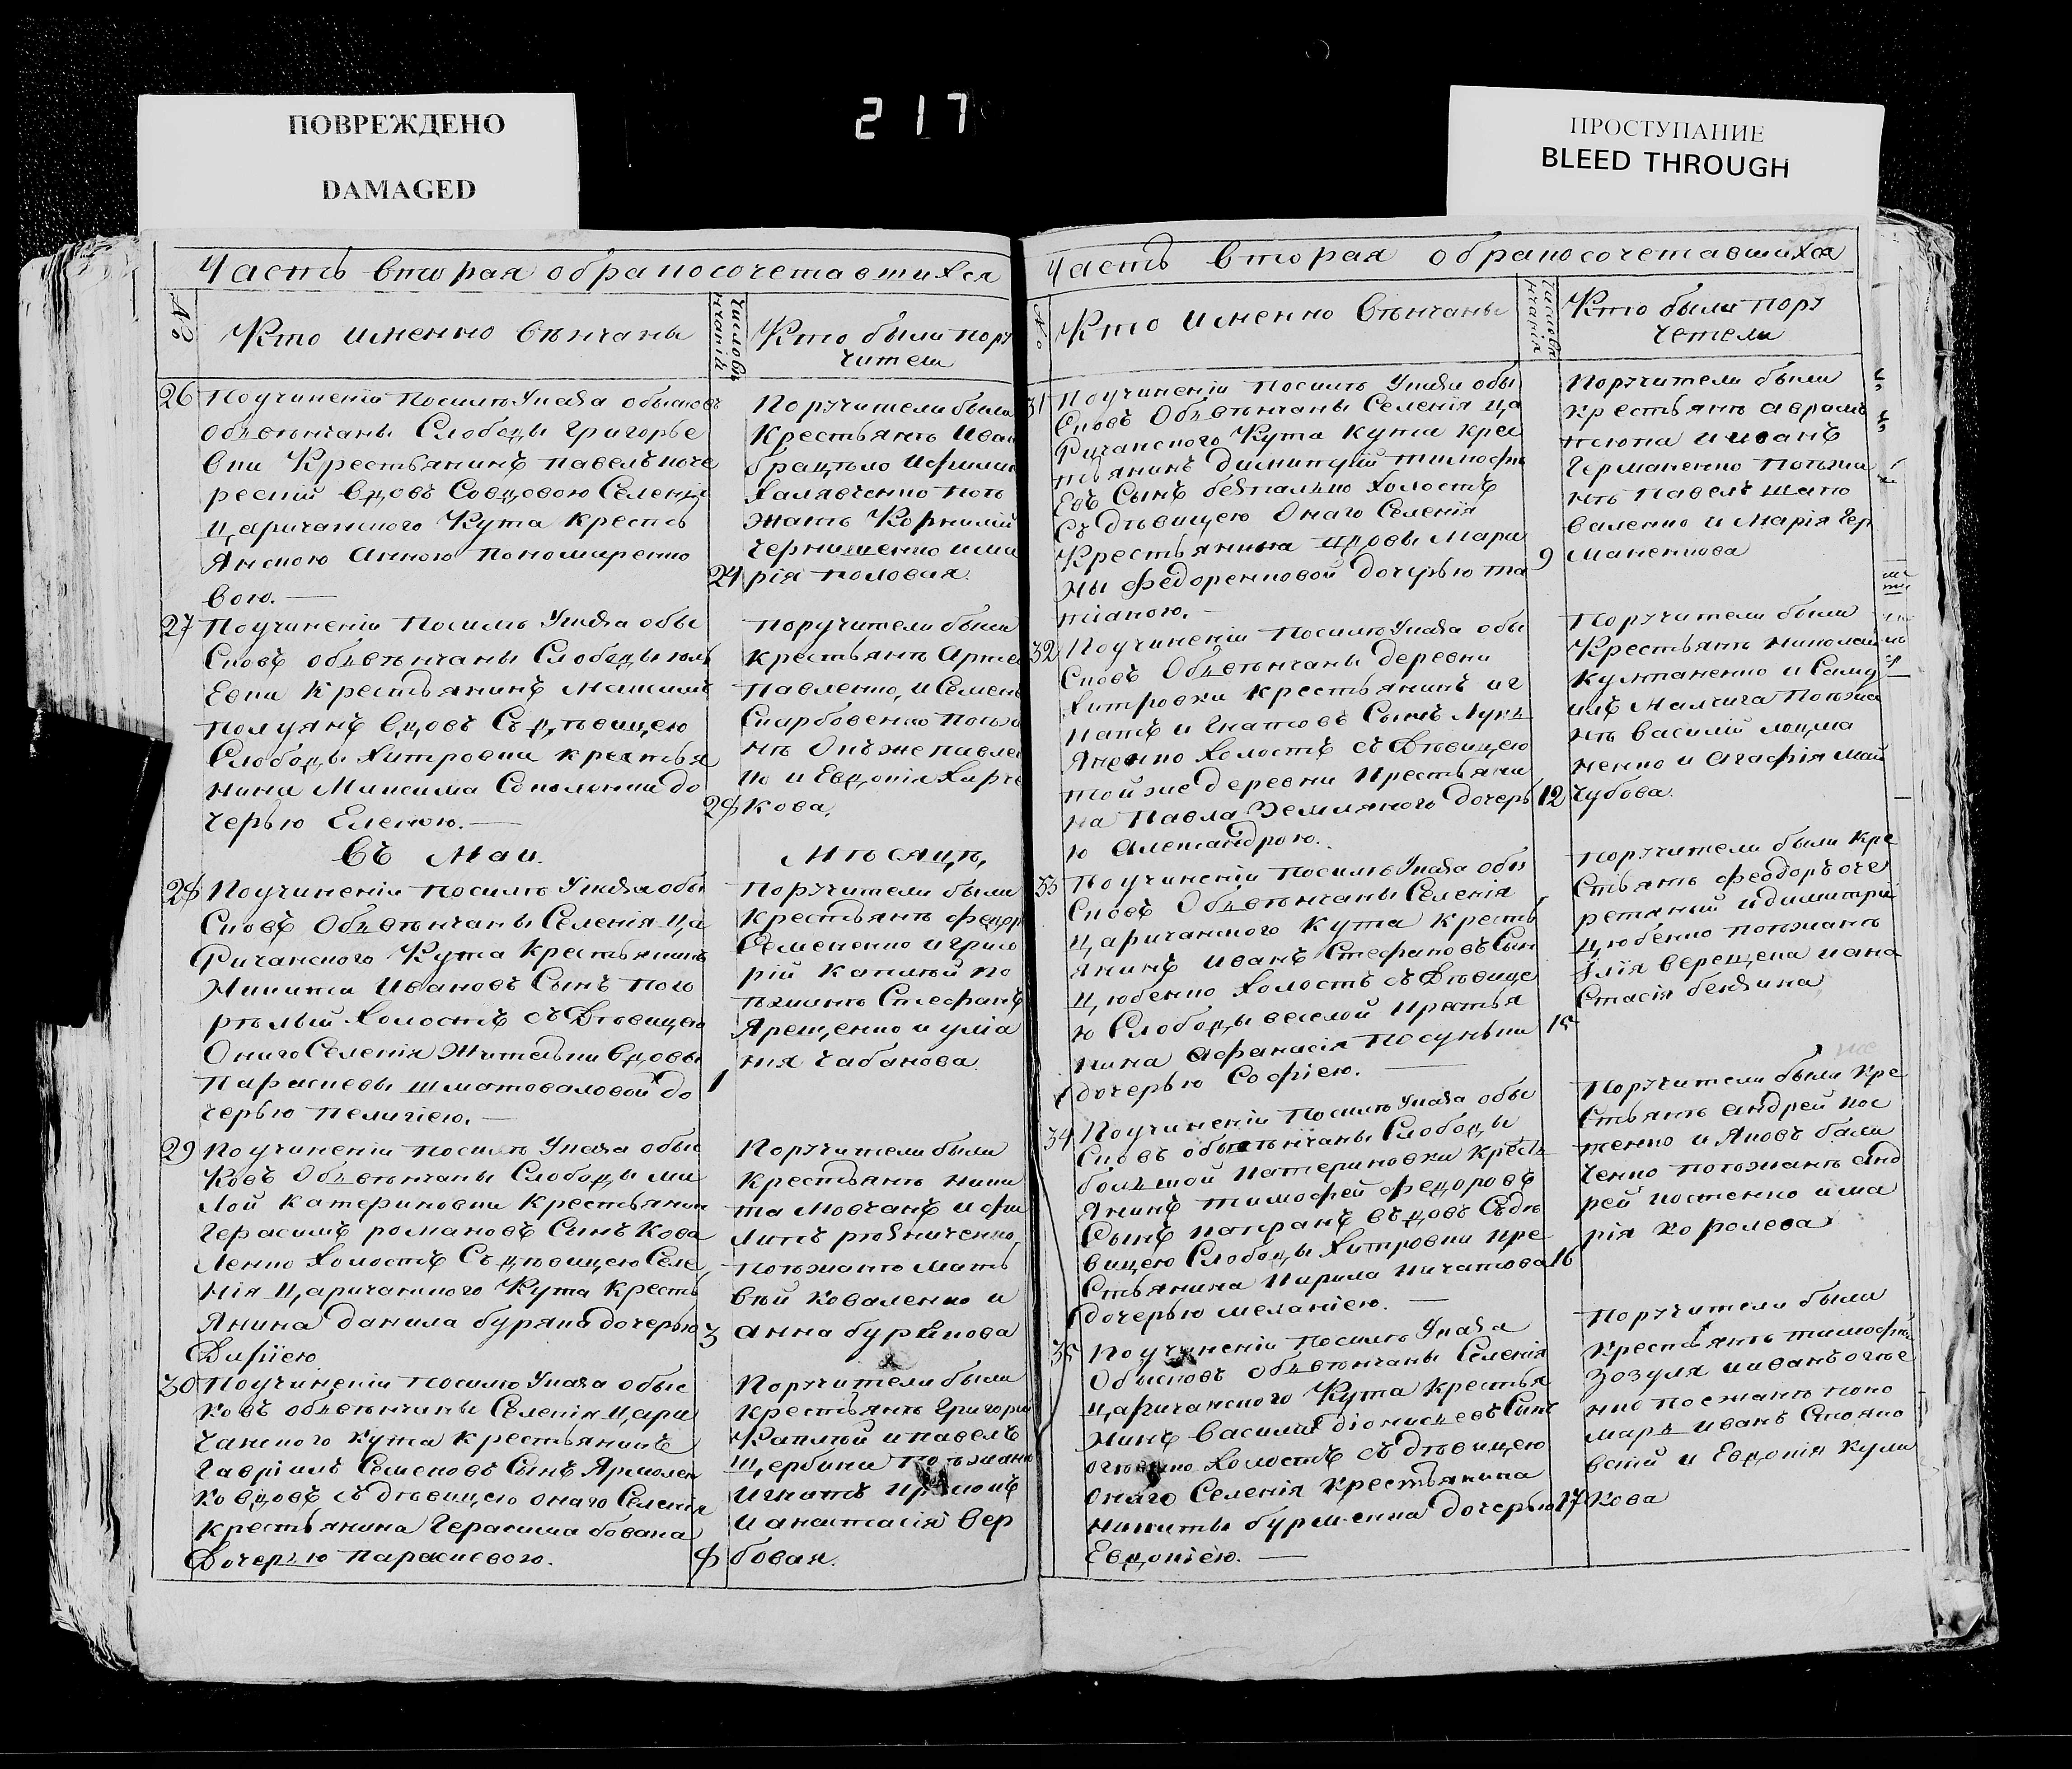 ПОВРЕЖДЕНО
DAMAGED
217
ПРОСТУПАНИЕ
BLEED THROUGH
Часть вторая обракосочетавшихся
№
Кто именно венчаны
Число венчанія
Кто были пору
чители
26
Поучиненіи посилѣ Указа обысковъ
обвѣнчаны Слободы Григорье
вки Крестьянинъ павелъ
вдовъ Совдовою Селенія
Царичанского Кута крестъ
янкою Анною пономаренко
вою.
24
Поручители были
Крестьянѣ Иван
Халявченко поѣ
жанѣ Корнилій
Чернишенко и ма
рія половая.
27
Поучиненіи посилѣ Указа обы
сковъ обвѣнчаны Слободы
Крестьянинъ Максимъ
полуянъ вдовъ Съ дѣвицею
Слободы Хитровки крестья
нина Максима до
черью Еленою.
28
поручители были
крестьянѣ
павленко, и Семенъ
поѣжа
нѣ Онъ же павлен
ко и Евдокія
кова.
Въ Маи
Мѣсяцѣ,
28
Поучиненіи посилѣ Указа обы
сковъ Обвѣнчаны Селенія Ца
ричанского Кута Крестьянинъ
Никита Ивановъ Сынъ пого
рѣлый холостъ съ Дѣвицею
Онаго Селенія Жительки вдовы
Параскевы шматоваловой до
черью пелагіею.
1
Поручители были
крестьянѣ федоръ
Семененко и григо
рій каплѣй по
ѣжанѣ Стефанъ
Ярещенко и уліа
нія чабанова.
29
Поучиненіи посилѣ Указа обыс
ковъ Обвѣнчаны Слободы ма
лой катериновки крестьянин
Герасимъ романовъ Сынъ Кова
ленко холостъ Съ дѣвицею Селе
нія Царичанского Кута кресть
янина данила буряка дочерью
Даріею
3
Поручители были
Крестьянѣ ники
та Мовчанъ и фи
липъ
поѣжанѣ Мат
вѣй коваленко и
анна бурякова
30
Поучиненіи посилѣ Указа обыс
ковъ обвѣнчаны Селенія Цари
чанского кута крестьянинъ
Гавріилъ Семеновъ Сынъ Ярмолен
ко вдовъ съ дѣвицею онаго Селенія
крестьянина Герасима бована
Дочерью параскевою.
8
Поручители были
крестьянѣ Григорій
Каплѣй и павелъ
Щербина поѣжанѣ
Игнатъ
и анастасія вер
бовая.
Часть вторая обракосочетавшихся
№
Кто именно вѣнчаны
Число венчанія
Кто были пору
четели
31
Поучиненіи посилѣ Указа обы
сковъ Обвѣнчаны Селенія Ца
ричанского Кута кута крес
тьянинъ димитрій тимофѣ
евъ Сынъ безпалько холостъ
Съ дѣвицею Онаго Селенія
Крестьянина вдовы Мари
ны федоренковой дочерью та
тіаною.
9
Поручители были
крестьянѣ аврамъ
и иванъ
Германенко поѣжа
нѣ павелъ шато
валенко и Марія гер
маненкова
32
Поучиненіи посилѣ Указа обы
сковъ Обвѣнчаны деревни
Хитровки крестьянинъ иг
натъ игнатовъ Сынъ Лукь
яненко холостъ съ Дѣвицею
той же деревни крестьяни
на Павла Земляного дочерь
ю Александрою.
12
Поручители были
крестьянѣ николай
култаненко и Саму
илъ Малтига поѣжа
нѣ василій лоцма
ненко и агафія май
чубова.
33
Поучиненіи посилѣ Указа обы
сковъ Обвѣнчаны Селенія
Царичанского кута кресть
янинъ иванъ Стефановъ Сын
Цюбенко холостъ съ Дѣвице
ю Слободы веселой крестья
нина Афанасія посуньки
дочерью Софіею.
15
поручители были кре
стьянѣ феодоръ оче
ретяный и димитрій
Цюбенко поѣжанѣ
Ілія верещака и ана
стасія
34
Поучиненіи посилѣ Указа обы
сковъ обвѣнчаны Слободы
большой катериновки кресть
янинъ тимофей федоровъ
Сынъ вдовъ Съ дѣ
вицею Слободы Хитровки кре
стьянина Кирила
дочерью меланіею.
16
Поручители были кре
стьянѣ андрей кос
тенко и Яковъ
ченко поѣжанѣ анд
рей костенко и ма
рія королева
35
Поучиненіи посилѣ Указа
Обысковъ обвѣнчаны Селенія
Царичанского Кута крестья
нинъ Василій діонисіевъ Сынъ
холостъ съ дѣвицею
онаго Селенія крестьянина
никиты дочерью
Евдокіею.
17
Поручители были
крестьянѣ тимофѣй
зозуля и иванъ
поежанѣ поно
марь иванъ
и Евдокія кули
кова